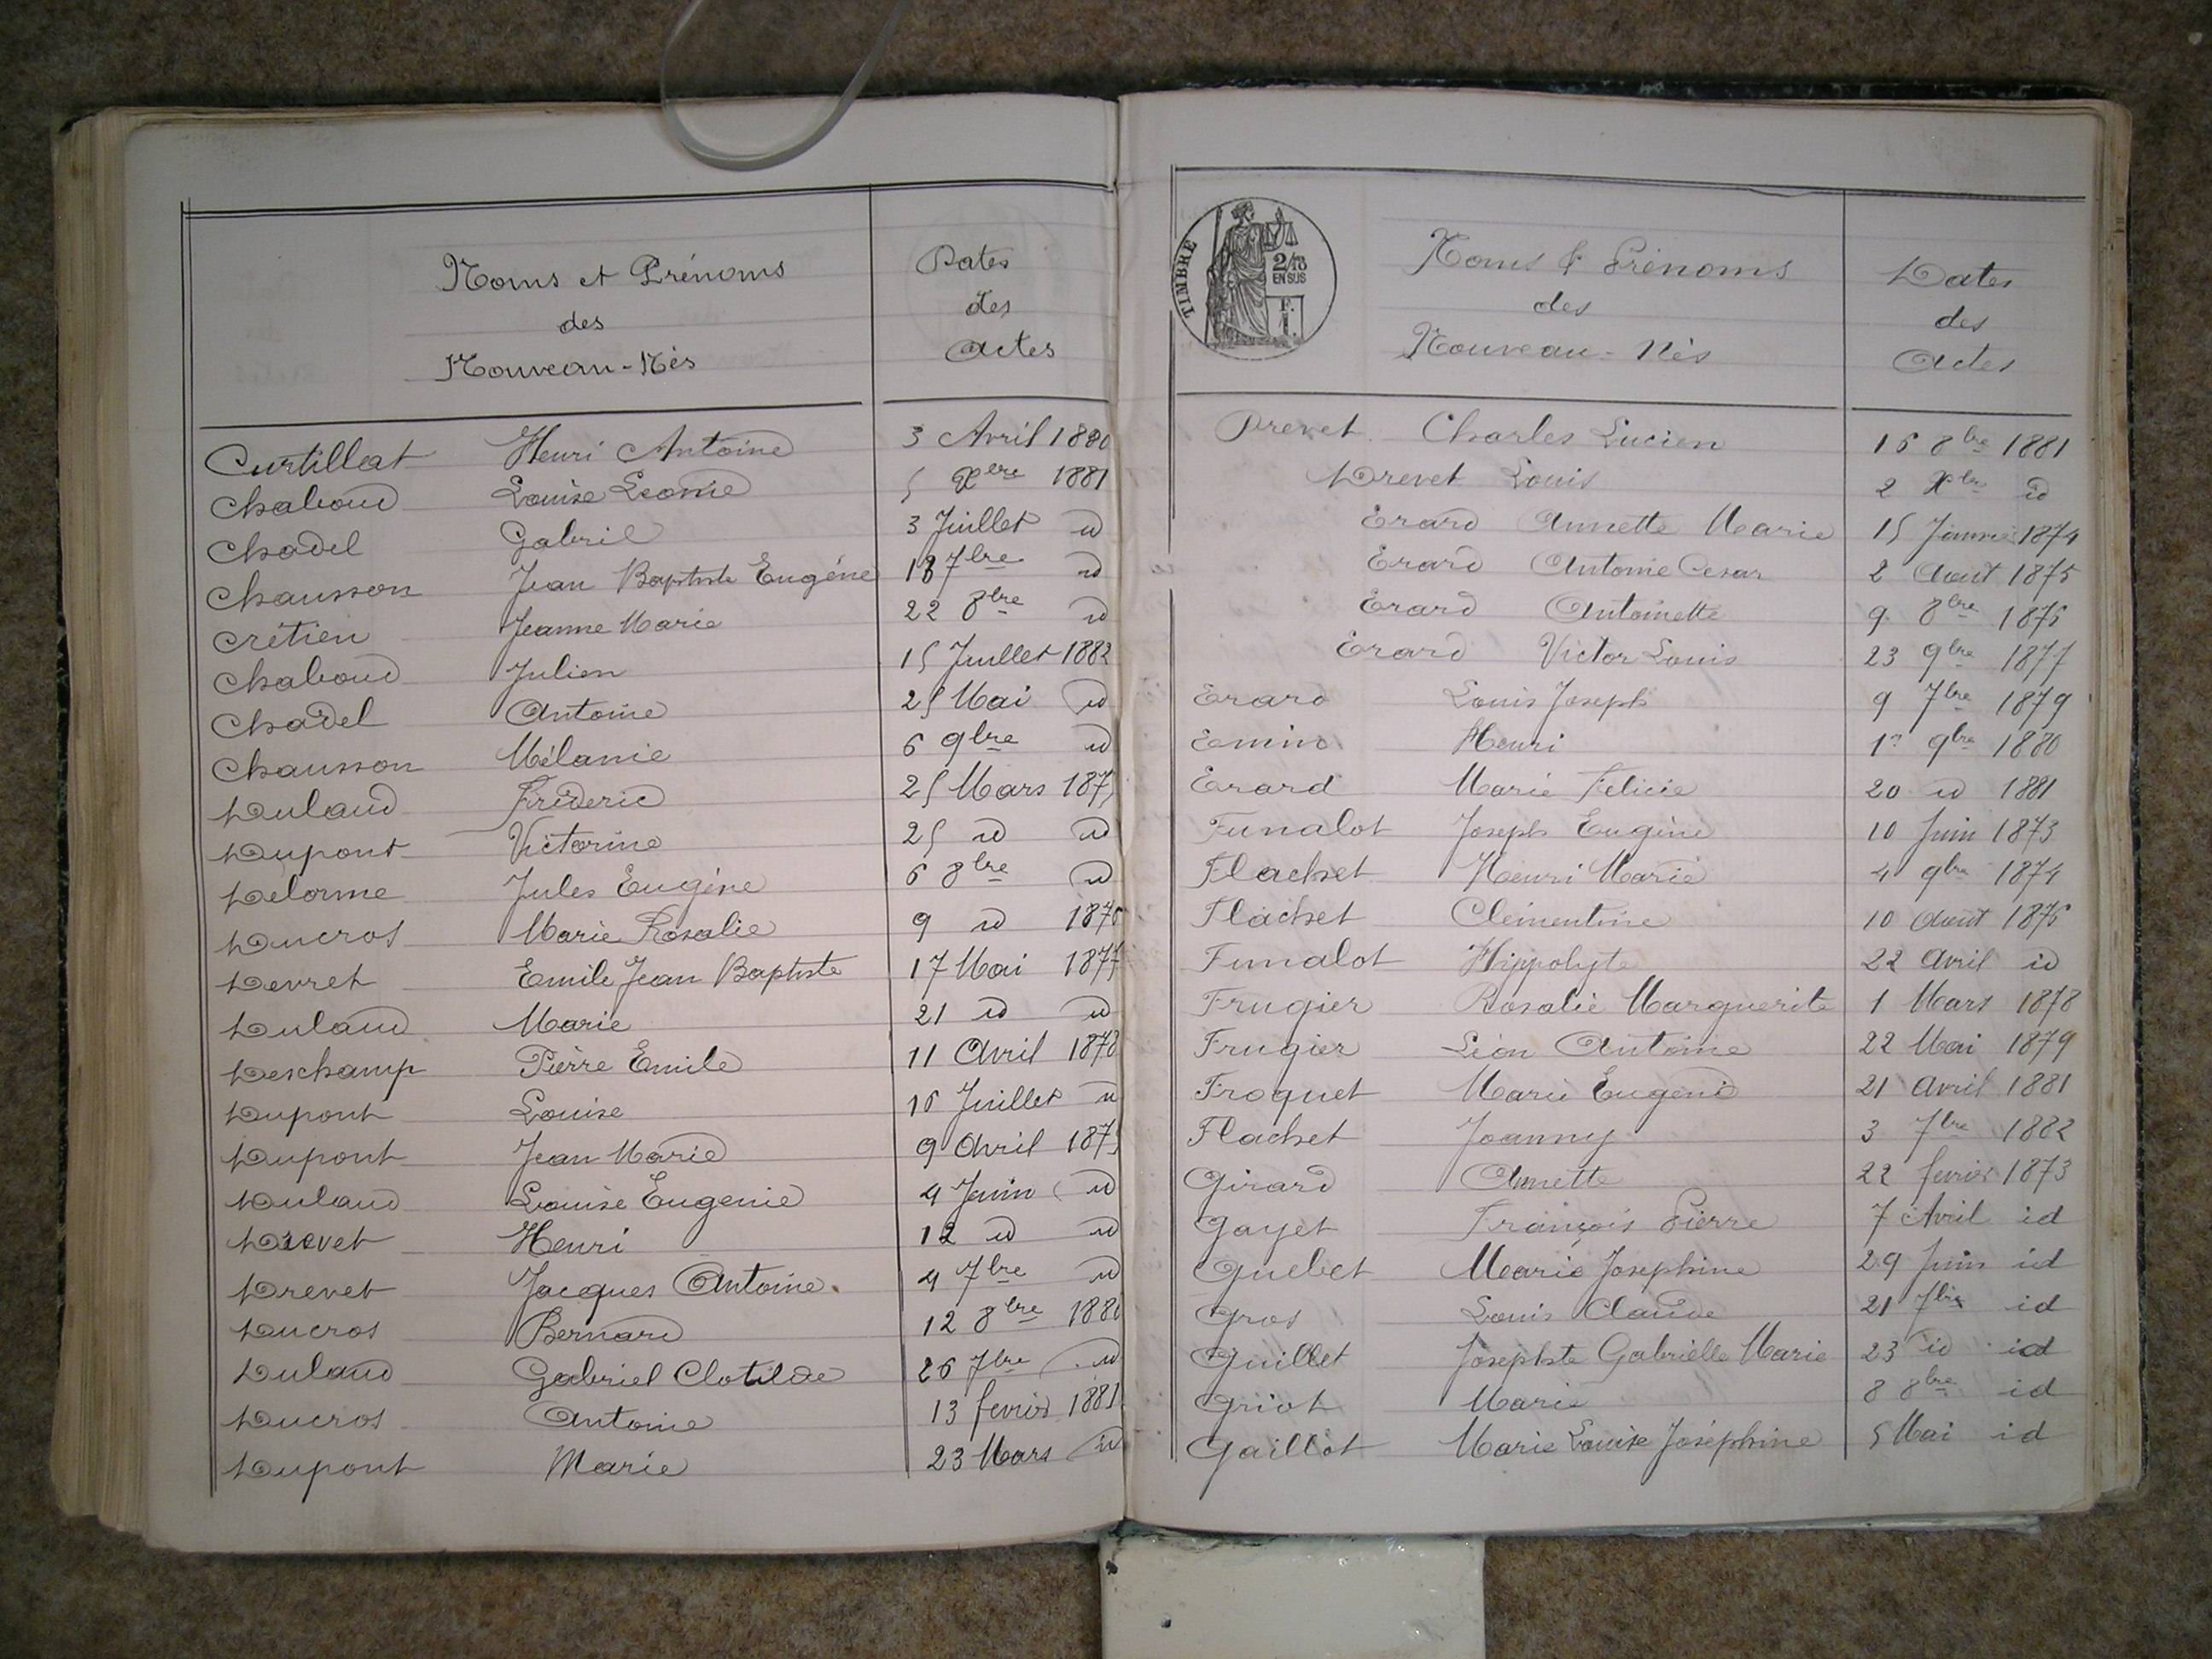 Noms et Prénoms
des
Nouveau-Nés
Dates
des
Actes
Curtillat Henri Antoine 3 Avril 1880
Chaboud Louise Leonie 5 Xbre 1881
Chadel Gabriel 3 Juillet id
Chausson Jean Baptiste Eugéne 18 7bre id
Crétien Jeanne Marie 22 8bre id
Chaboud Julien 15 Juillet 1882
Chadel Antoine 25 Mai id
Chausson Mélanie 6 9bre id
Dulaud Fréderic 25 Mars
Dupont Victorine 25 id id
Delorme Jules Eugéne 6 8bre id
Ducros Marie Rosalie 9 id 1876
Devret Emile Jean Baptiste 17 Mai 1877
Dulaud Marie 21 id id
Deschamp Pierre Emile 11 Avril 1878
Dupont Louise 16 Juillet id
Dupont Jean Marie 9 Avril
Dulaud Louise Eugenie 4 Juin id
Drevet Henri 12 id id
Drevet Jacques Antoine. 4 7bre id
Ducros Bernard 12 8bre 1880
Dulaud Gabriel Clotilde 26 7bre id
Ducros Antoine 13 fevrier 1881
Dupont Marie 23 Mars id
TIMBRE
2/10
EN SUS
Noms & Prénoms
des
Nouveau-Nés
Dates
des
Actes
Drevet Charles Lucien 16 8bre 1881
Drevet Louis 2 Xbre id
Erard Annette Marie 15 Janvier 1874
Erard Antoine Cesar 2 Aout 1875
Erard Antoinette 9 8bre 1876
Erard Victor Louis 23 9bre 1877
Erard Louis Joseph 9 7bre 1879
Emin Henri 1er 9bre 1880
Erard Marie Félicie 20 id 1881
Funalot Joseph Eugéne 10 Juin 1873
Flachet Henri Marie 4 9bre 1874
Flachet Clémentine 10 Aout 1876
Funalot Hippolyte 22 Avril id
Frugier Rosalie Marguerite 1 Mars 1878
Frugier Léon Antoine 22 Mai 1879
Froquet Marie Eugenie 21 Avril 1881
Flachet Joanny 3 7bre 1882
Girard Annette 22 fevrier 1873
Gayet François Pierre 7 Avril id
Guebet Marie Josephine 29 Juin id
Gros Louis Claude 21 7bre id
Guillet Josephte Gabrielle Marie 23 id id
Griot Marie 8 8bre id
Gaillot Marie Louise Joséphine 5 Mai id